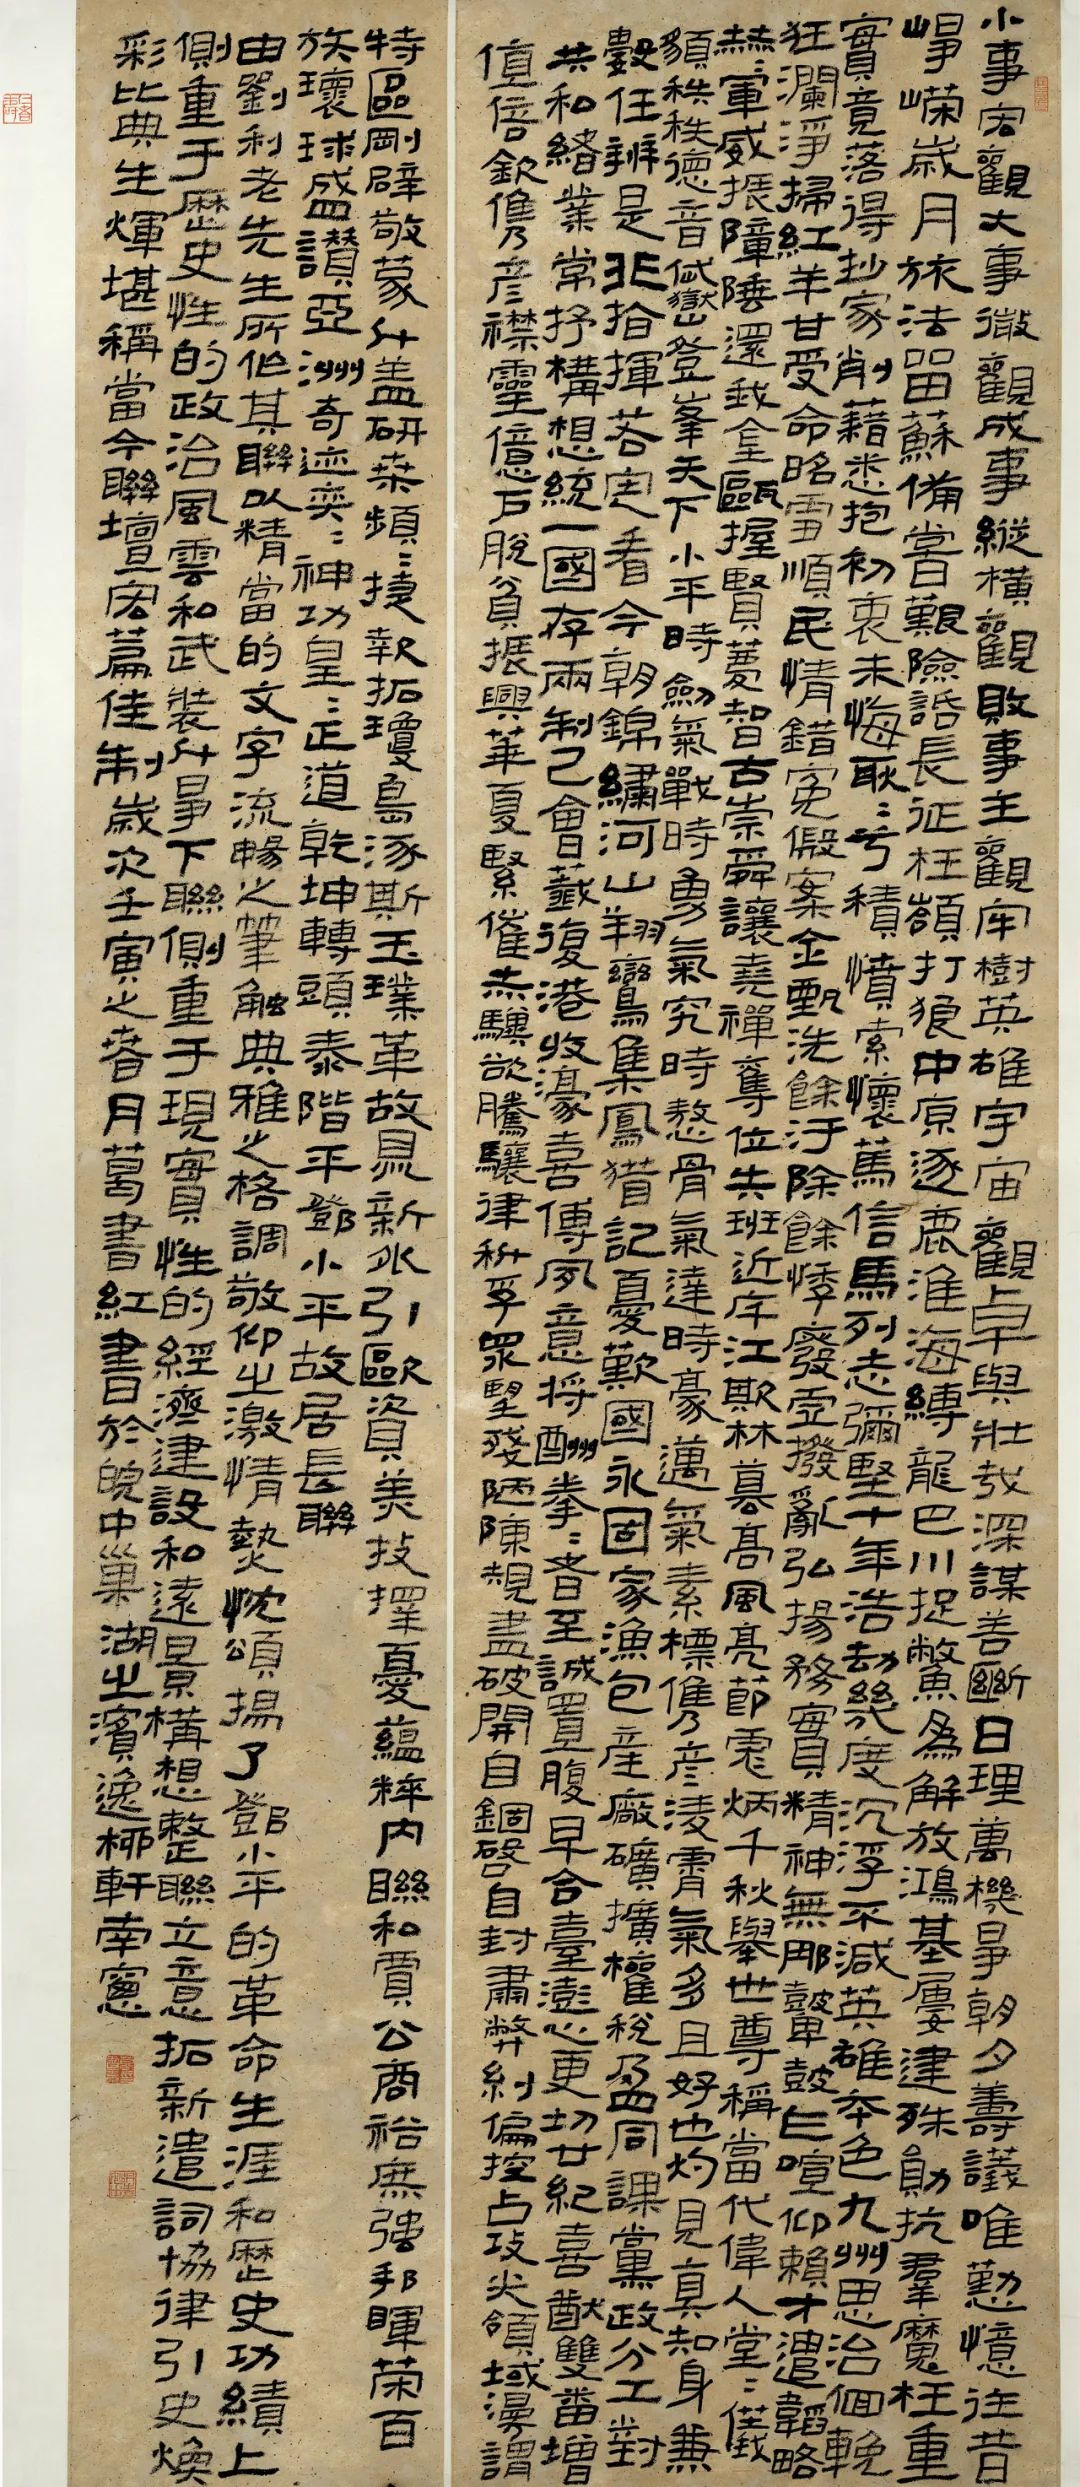 小事宏觀大事微觀成事縱橫觀敗事主觀牢樹英雄宇宙觀早與壯哉深謀善斷日理萬機爭朝夕籌議唯勤憶往昔
崢嶸歲月旅法留蘇備嘗艱險話長征枉嶺打狼中原逐鹿淮海縛龍巴川捉鱉魚為解放鴻基屢建殊勛抗羣魔枉重
實竟落得抄家削籍悉抱初衷未悔耿〻兮積憤索懷篤信馬列志彌堅十年浩劫幾度沉浮不減英雄本色九州思治佪輓
狂瀾淨掃紅羊甘受命昭雪順民情錯冤假案金甄洗餘汙除餘悸廢壺撥亂弘揚務實精神無那鼙鼓亡喧仰賴才遣韜略
赫〻軍威振障陲還我金甌握賢夢智古崇舜讓堯禪奪位失班近斥江欺林慕高風亮節虔炳千秋舉世尊稱當代偉人堂〻儀
貌秩秩德音岱嶽登峯天下小平時劍氣戰時勇氣究時憨骨氣達時豪邁氣素標雋彥淩霄氣多且好也灼見真知身兼
數任辨是非指揮若定看今朝錦繡河山翔鸞集鳳猎記憂歎國永固家漁包產廠礦擴權稅盈同課黨政分工對
共和緒業常抒構想統一國存兩制已會叢復港收濠喜傳夙意將酬拳〻者至誠置腹早合臺澎心更切廿紀喜猷雙番增
值倍欽雋彥襟靈億戶脫貧振興華夏緊催赤驥欲騰驤律科孚眾望殘陋陳規盡破開自錮啓自封肅弊糾偏控占攻尖領域漫謂
特區剛闢敬蒙升盖研桑頻〻捷報拓瓊島涿斯玉璞革故鼎新外引歐資美技擇憂蘊粹內聯和賈公商裕庶強邦暉榮百
族瓌球盛讚亞洲奇迹奕〻神功皇〻正道乾坤轉頭泰階平鄧小平故居長聯
由劉利老先生所作其聯以精當的文字流暢之筆觸典雅之格調敬仰之激情熱忱頌揚了鄧小平的革命生涯和歷史功績上
側重于歷史性的政治風雲和武裝升爭下聯側重于現實性的經濟建設和遠景構想整聯立意拓新遣詞協律引史煥
彩比典生輝堪稱當今聯壇宏篇佳制歲次壬寅之春月葛書紅書於皖中巢湖之濱逸柳軒南窻